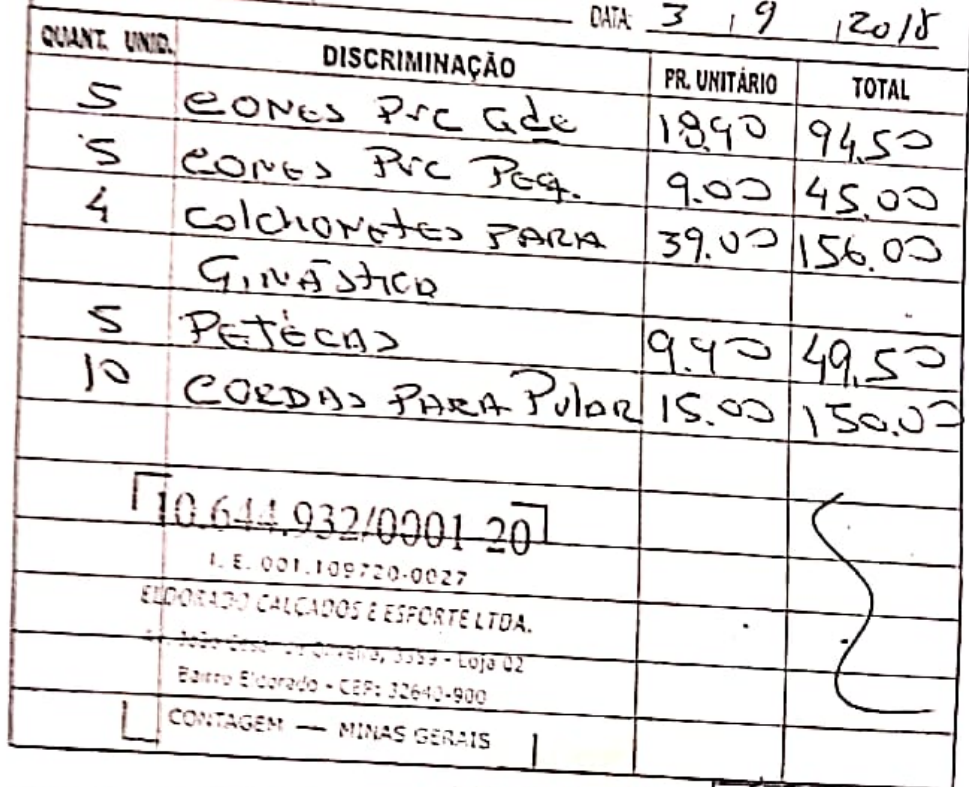 DATA: 3 / 9 / 2018
QUANT. UNID. DISCRIMINAÇÃO PR. UNITÁRIO TOTAL
5 CONES PVC Gde 18.90 94,50
5 CONES PVC PEQ. 9.00 45.00
4 COLCHONETES PARA 39.00 156.00
GINÁSTICA
5 PETÉCAS 9.90 49,50
10 CORDAS PARA PULAR 15.00 150.00
10.644.932/0001-20
I. E. 001.109720-0027
ELDORADO CALÇADOS E ESPORTE LTDA.
Av. João Cesar de Oliveira, 3359 - Loja 02
Bairro Eldorado - CEP: 32640-900
CONTAGEM — MINAS GERAIS